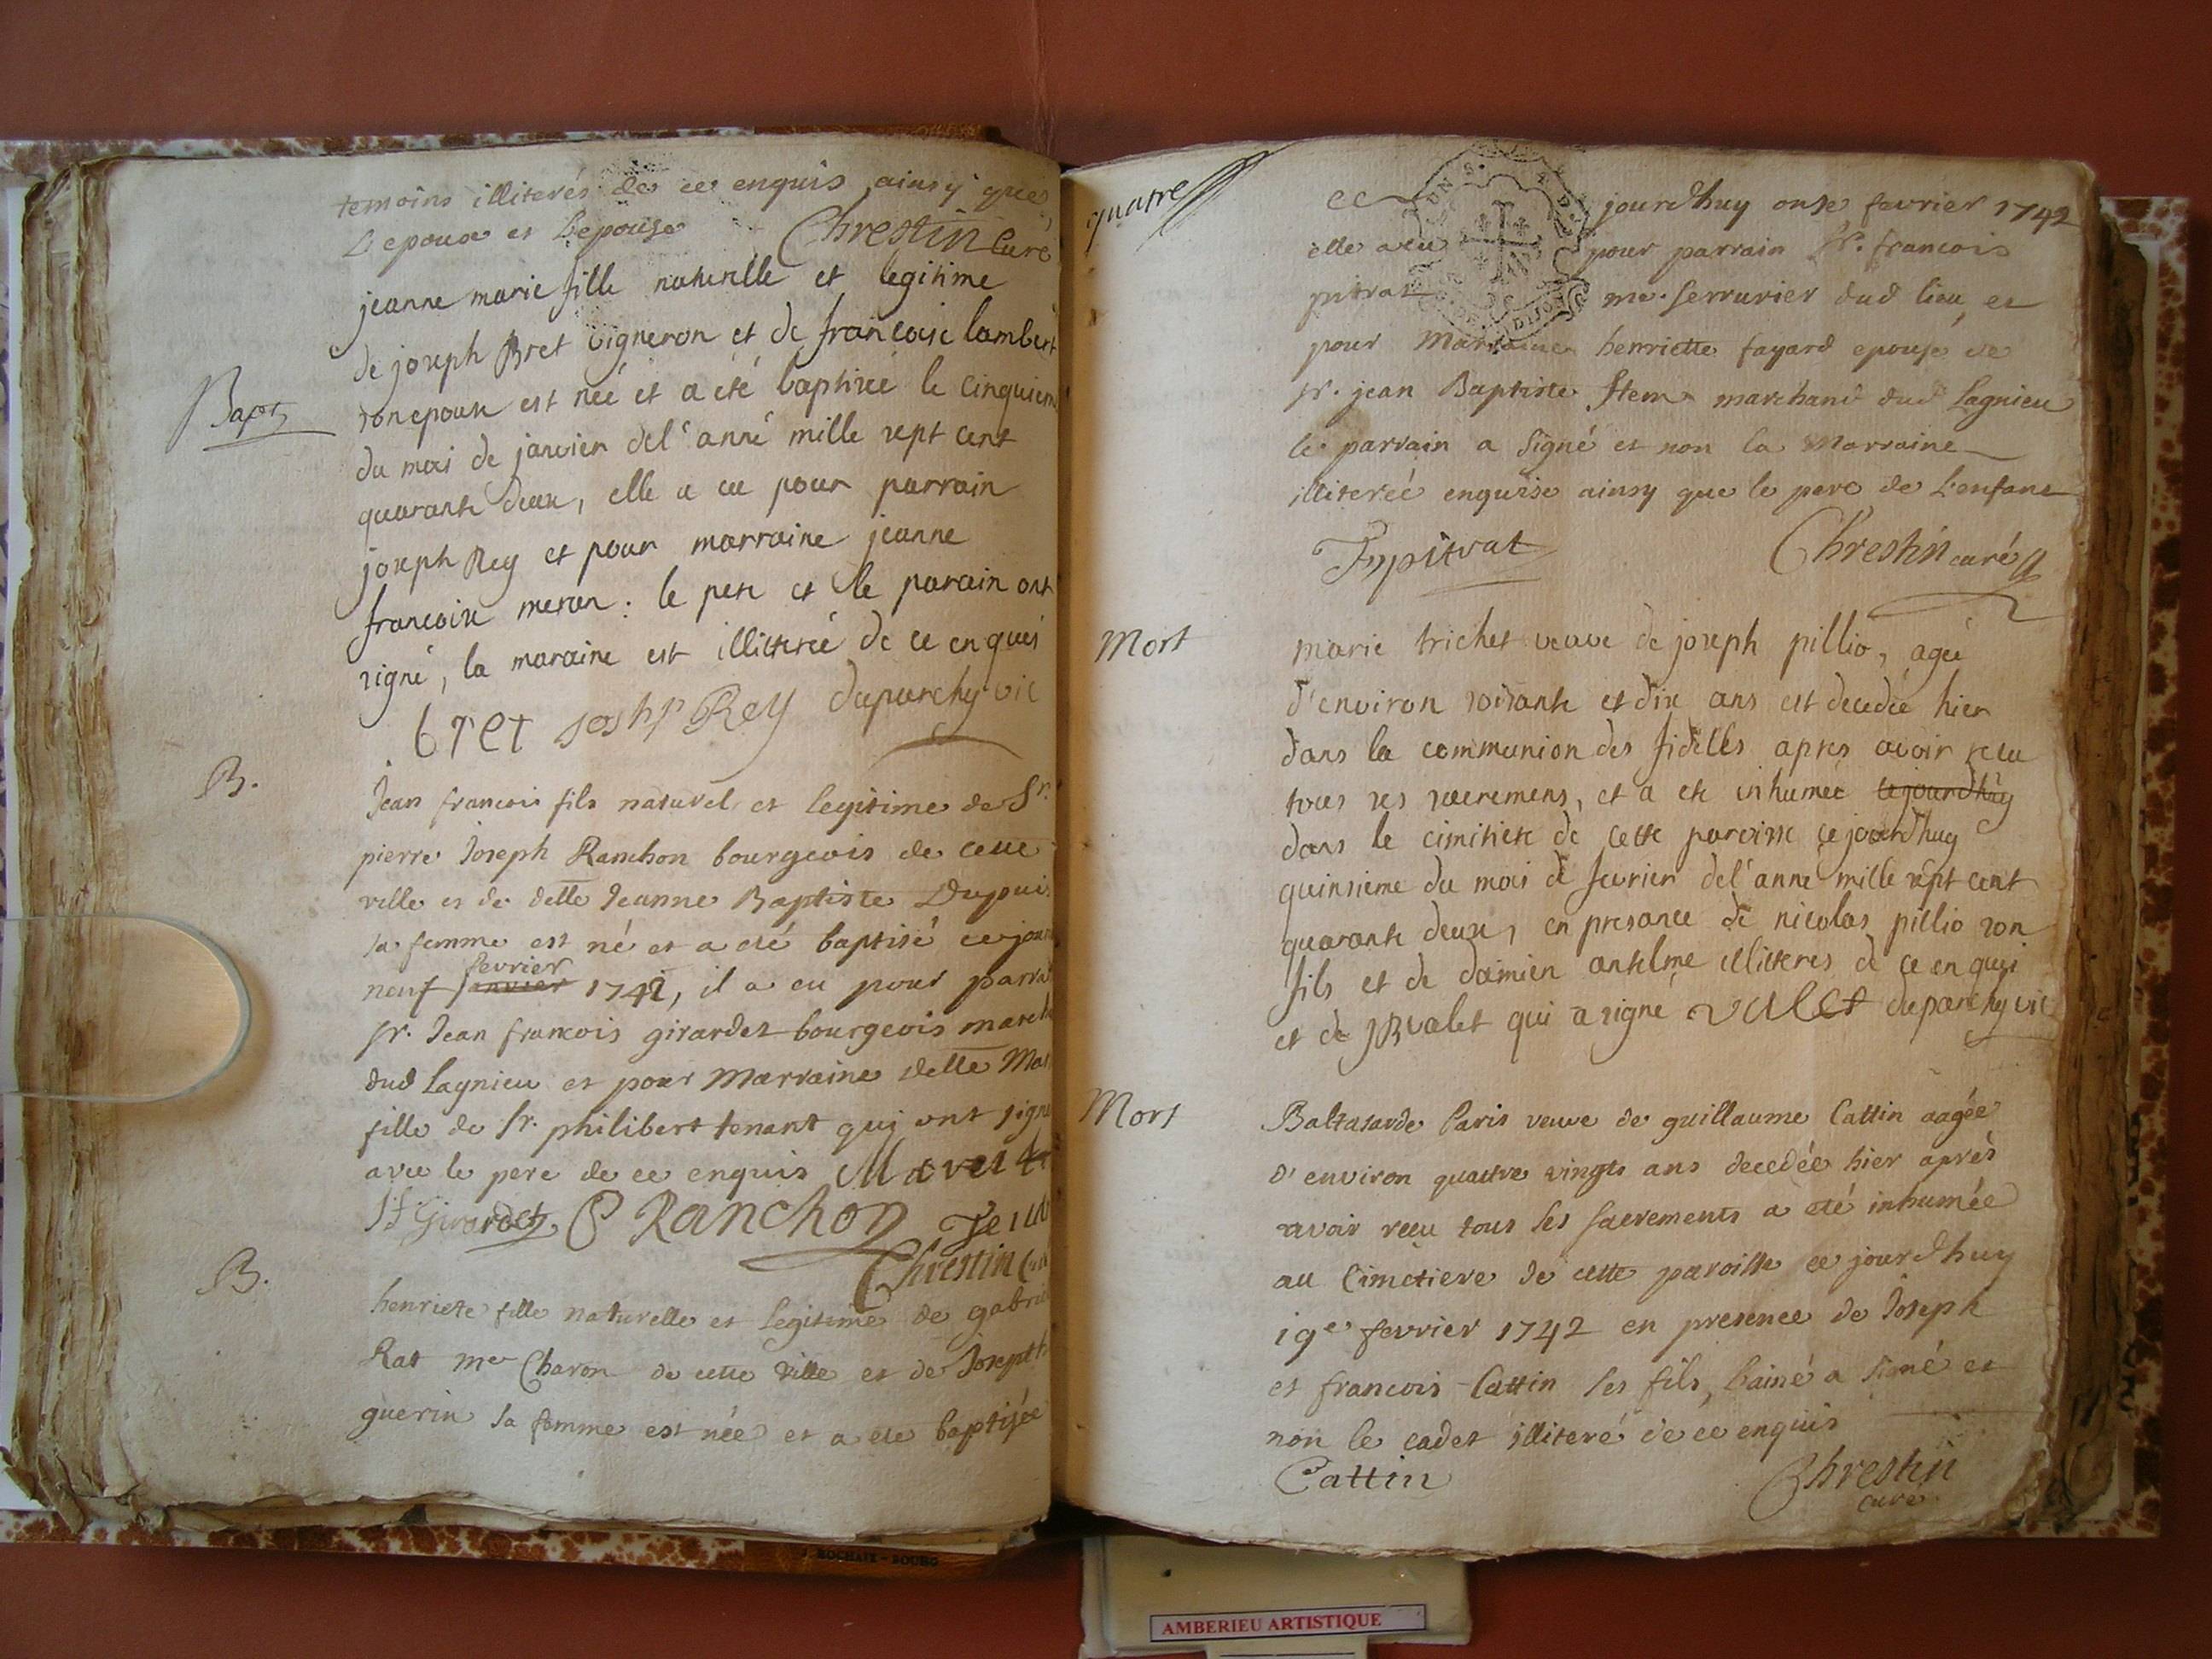 temoins illiterés de ce enquis ainsy que
L'epoux et L'epouse Chrestin Curé
Bapt
jeanne marie fille naturelle et legitime
de joseph Bret vigneron et de francoise lambert
son epouse est née et a été baptisée le cinquiem
du mois de janvier del'anné mille sept cent
quarante deux, elle a eu pour parrain
joseph Rey et pour marraine jeanne
francoise meran : le pere et le parain ont
signé, la maraine est illitereé de ce enquis
bret joshp Rey duparchy vic
B.
Jean francois fils naturel et legitime de Sr.
pierre Joseph Ranchon bourgeois de cette
ville et de delle Jeanne Baptiste Dupuis
sa femme est né et a eté baptisé ce jour
fevrier
neuf janvier 1742, il a eu pour parra
sr. Jean francois girardet bourgeois march
dud Lagnieu et pour Marraine delle Mar
fille de Sr. philibert tenant qui ont signé
avec le pere de ce enquis
J f Girardet P Ranchon
Chrestin Cur
B.
henriete fille naturelle et Legitime de gabrie
Rat me Charon de cette ville et de Joseph
guerin sa femme est née et a ete baptisée
quatre
ce jourdhuy onse fevrier 1742
elle a eu pour parrain Sr. francois
pitrat me. serrurier dud lieu et
pour Marraine henriette fayard epouse de
sr. jean Baptiste Item marchand dud Lagnieu
le parrain a signé et non la Marraine
illitereé enquise ainsy que le pere de L'enfant
F pitrat Chrestin curé
Mort
marie trichet veuve de joseph pillio, ageé
d'environ soisante et dix ans est decedée hier
dans la communion des fidelles apres avoir recu
tous ses sacremens, et a ete inhumée cejourdhuy
dans le cimitiere de cette paroisse cejourdhuy
quinsieme du mois de fevrier del'anné mille sept cent
quarante deux, en presance de nicolas pillio son
fils et de damien antelme illiteres de ce enquis
et de JB valet qui a signé valet duparchy vic
Mort
Baltasarde Paris veuve de guillaume Cattin aagée
d'environ quattre vingts ans decedée hier aprés
avoir recu tous les sacrements a eté inhumée
au Cimetiere de cette paroisse ce jourdhuy
19e fevrier 1742 en presence de Joseph
et francois Cattin ses fils, l'ainé a signé et
non le cadet illiteré de ce enquis
Cattin Chrestin
curé
J. ROCHAIX - BOURG
AMBERIEU ARTISTIQUE